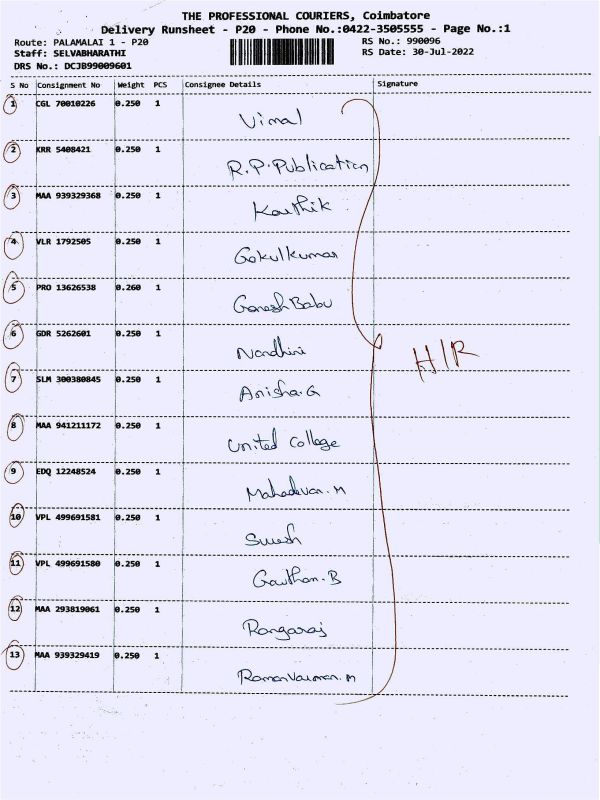 THE PROFESSIONAL COURIERS, Coimbatore
Delivery Runsheet - P20 - Phone No.:0422-3505555 - Page No.:1
Route: PALAMALAI 1 - P20 RS No.: 990096
Staff: SELVABHARATHI RS Date: 30-Jul-2022
DRS No.: DCJB99009601
S No Consignment No Weight PCS Consignee Details Signature
1 CGL 70010226 0.250 1
Vimal
2 KRR 5408421 0.250 1
R.P.Publication
3 MAA 939329368 0.250 1
Karthik
4 VLR 1792505 0.250 1
Gokulkumar
5 PRO 13626538 0.260 1
Ganesh Babu
6 GDR 5262601 0.250 1
Nandhini
H/R
7 SLM 300380845 0.250 1
Anisha.G
8 MAA 941211172 0.250 1
United College
9 EDQ 12248524 0.250 1
Mahadevan.M
10 VPL 499691581 0.250 1
Suresh
11 VPL 499691580 0.250 1
Gowthan.B
12 MAA 293819061 0.250 1
Rangaraj
13 MAA 939329419 0.250 1